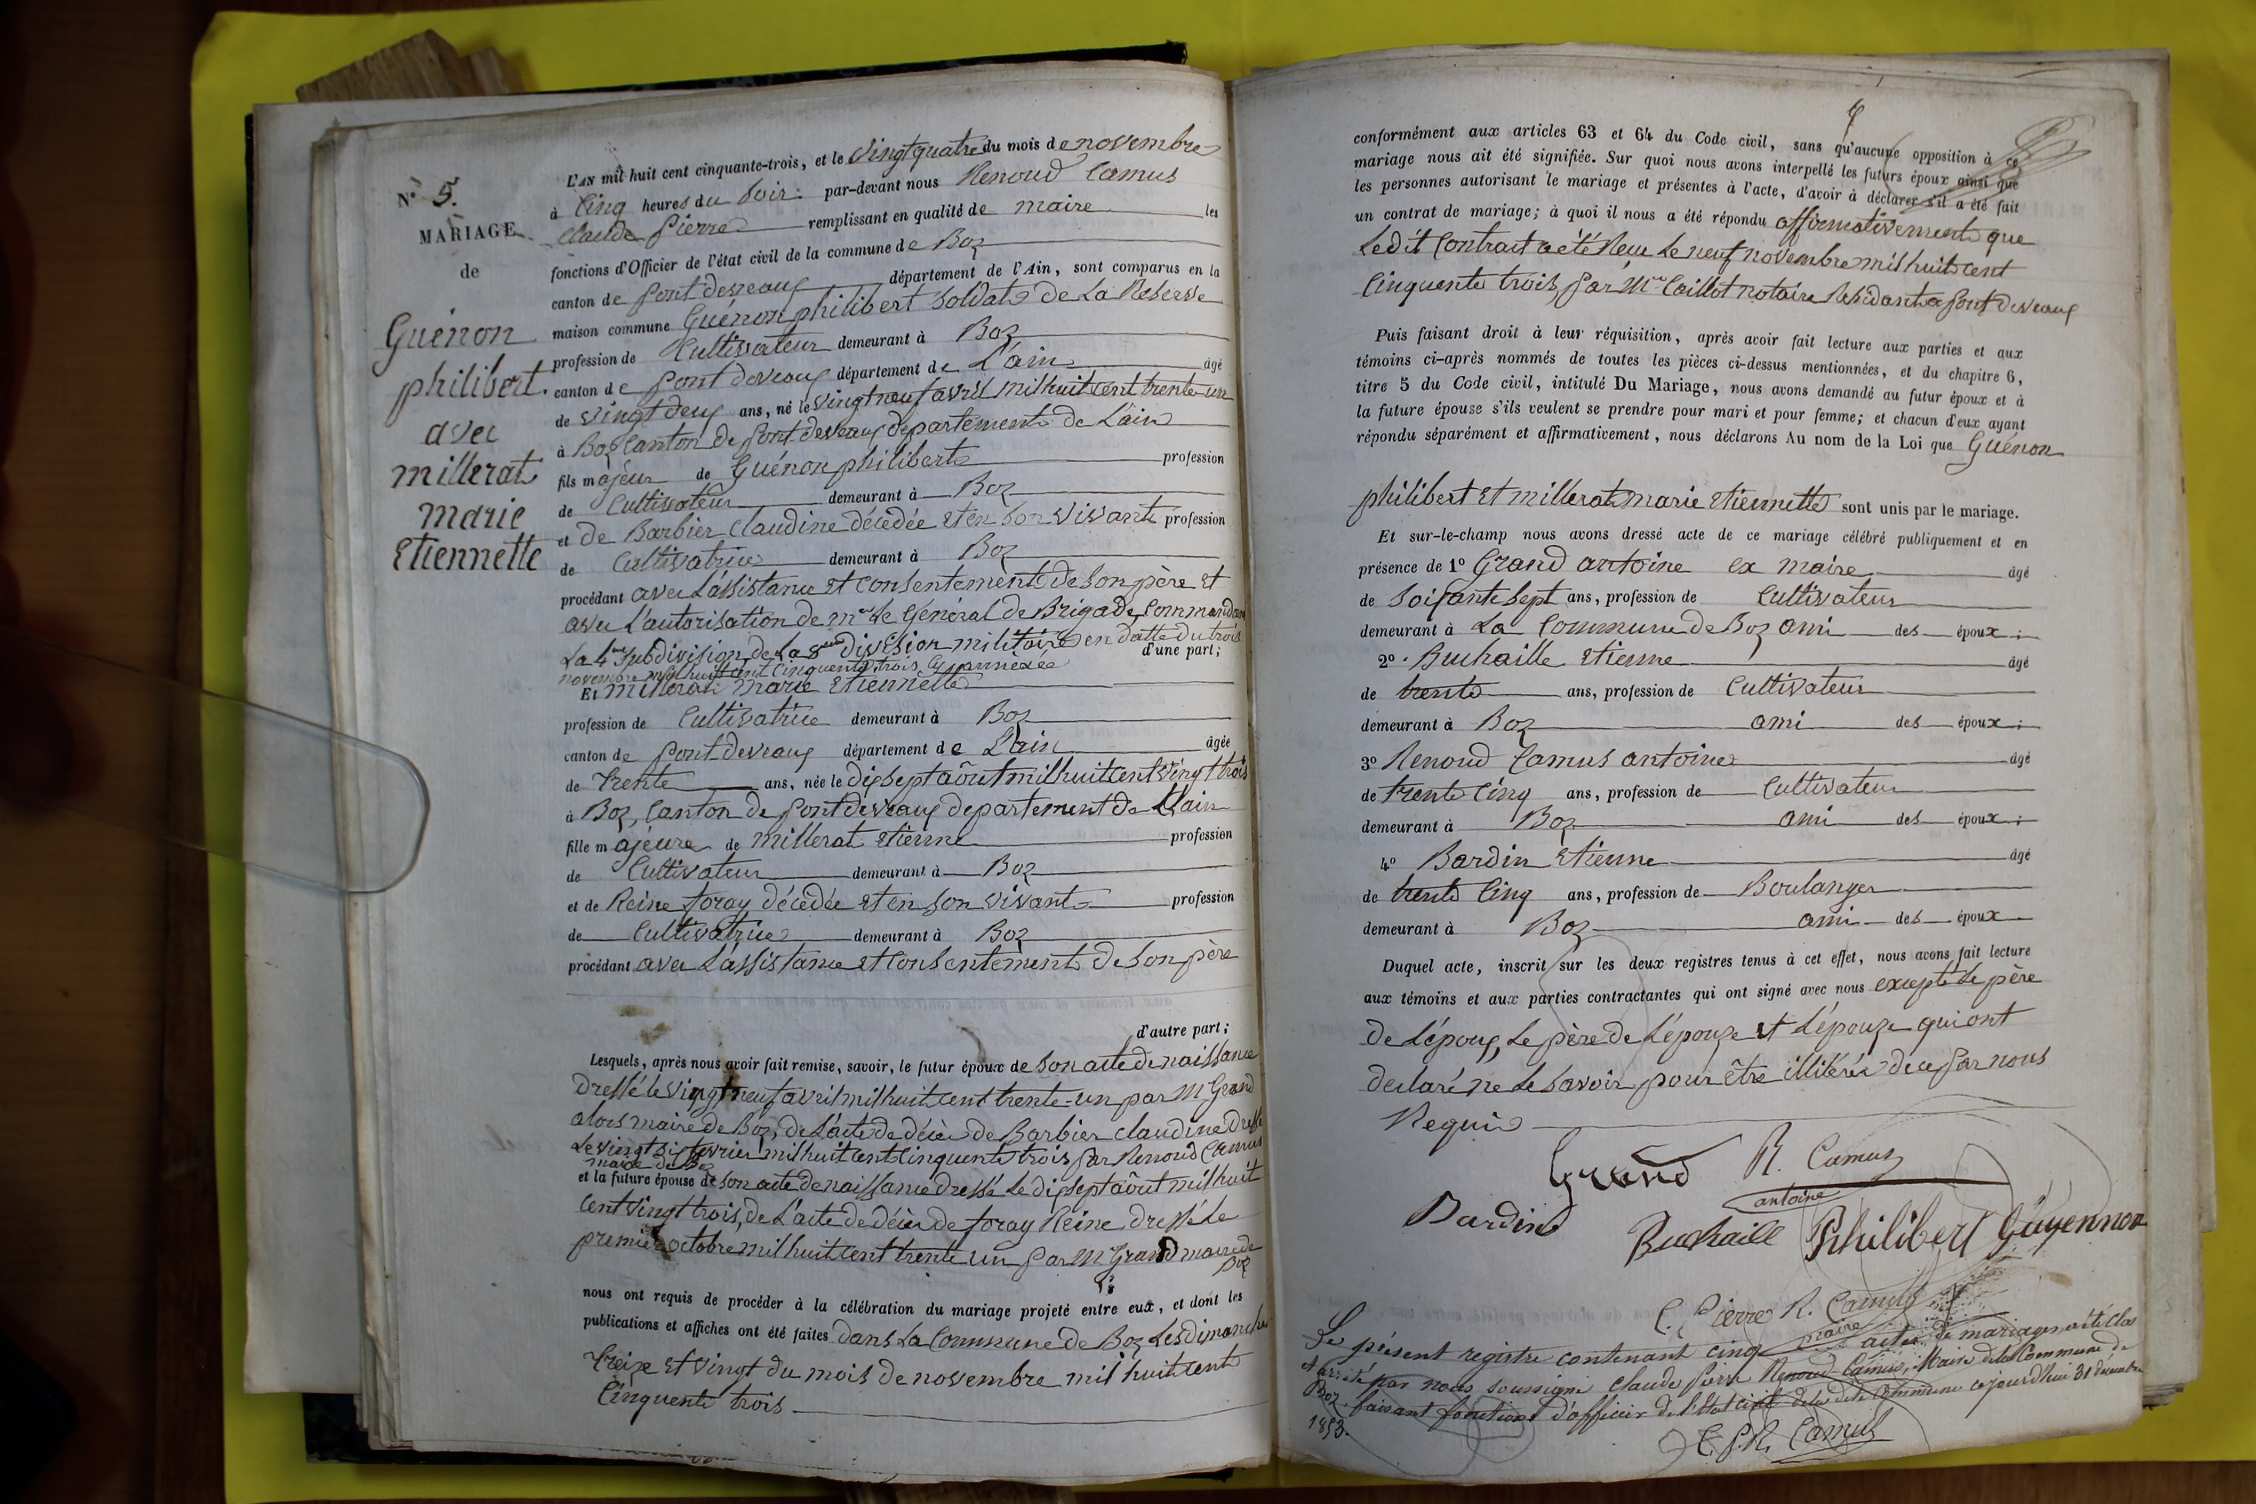 N° 5.
MARIAGE
de
Guénon
philibert
avec
millerat
marie
Etiennette
L'AN mil huit cent cinquante-trois, et le vingt quatre du mois de novembre
à Cinq heures du Soir par-devant nous Renoud Camus
Claude Pierre remplissant en qualité de maire les
fonctions d'Officier de l'état civil de la commune de Boz
canton de Pont deveaux département de l'Ain, sont comparus en la
maison commune Guénon philibert Soldat de La Reserve
profession de Cultivateur demeurant à Boz
canton de Pont deveaux département de L'ain âgé
de vingt deux ans, né le vingt neuf avril mil huit cent trente-un
à Boz Canton de Pont deveaux departement de L'ain
fils majeur de Guénon philibert profession
de Cultivateur demeurant à Boz
et de Barbier Claudine décédée et en Son vivant profession
de Cultivatrice demeurant à Boz
procédant avec L'assistance et Consentement de Son père et
avec L'autorisation de mr Le Général de Brigade, Commandant
La 4me Subdivision de La 8me Division militaire en datte du trois
novembre mil huit cent Cinquente trois Cy annèxée d'une part;
Et millerat marie Etiennette
profession de Cultivatrice demeurant à Boz
canton de Pont deveaux département de L'ain âgée
de trente ans, née le dix sept août mil huit cent vingt trois
à Boz, Canton de Pont deveaux departement de L'ain
fille majeure de millerat Etienne profession
de Cultivateur demeurant à Boz
et de Reine foray décédée et en Son vivant profession
de Cultivatrice demeurant à Boz
procédant avec L'assistance et Consentement de Son père
d'autre part;
Lesquels, après nous avoir fait remise, savoir, le futur époux de Son acte de naissance
Dressé le vingt neuf avril mil huit cent trente-un par M Grand
alors maire de Boz, de L'acte de décès de Barbier Claudine dressé
Le vingt six fevrier mil huit cent Cinquente trois par Renoud Camus
maire de Boz
et la future épouse de Son acte de naissance dressé Le dix sept août mil huit
Cent vingt trois, de L'acte de décès de foray Reine dressé Le
premier octobre mil huit cent trente un par M Grand maire de
Boz
nous ont requis de procéder à la célébration du mariage projeté entre eux, et dont les
publications et affiches ont été faites dans La Commune de Boz Les dimanches
treize et vingt du mois de novembre mil huit cent
Cinquente trois
conformément aux articles 63 et 64 du Code civil, sans qu'aucune opposition à ce
mariage nous ait été signifiée. Sur quoi nous avons interpellé les futurs époux ainsi que
les personnes autorisant le mariage et présentes à l'acte, d'avoir à déclarer s'il a été fait
un contrat de mariage; à quoi il nous a été répondu affirmativement que
Ledit Contrat a été Reçu Le neuf novembre mil huit cent
Cinquente trois, par Mre Caillot notaire Résidant à Pont deveaux
Puis faisant droit à leur réquisition, après avoir fait lecture aux parties et aux
témoins ci-après nommés de toutes les pièces ci-dessus mentionnées, et du chapitre 6,
titre 5 du Code civil, intitulé Du Mariage, nous avons demandé au futur époux et à
la future épouse s'ils veulent se prendre pour mari et pour femme; et chacun d'eux ayant
répondu séparément et affirmativement, nous déclarons Au nom de la Loi que Guénon
philibert et millerat marie Etiennette sont unis par le mariage.
Et sur-le-champ nous avons dressé acte de ce mariage célébré publiquement et en
présence de 1° Grand antoine ex maire âgé
de Soixante Sept ans, profession de Cultivateur
demeurant à La Commune de Boz ami des époux;
2° Buchaille Etienne âgé
de trente ans, profession de Cultivateur
demeurant à Boz ami des époux;
3° Renoud Camus antoine âgé
de trente Cinq ans, profession de Cultivateur
demeurant à Boz ami des époux;
4° Bardin Etienne âgé
de trente Cinq ans, profession de Boulanger
demeurant à Boz ami des époux
Duquel acte, inscrit sur les deux registres tenus à cet effet, nous avons fait lecture
aux témoins et aux parties contractantes qui ont signé avec nous excepté Le père
de L'époux, Le père de L'épouze et L'épouze qui ont
déclaré ne Le Savoir pour être illitérés de ce par nous
Requis
Grand R. Camus
antoine
Bardin Buchaille Philibert Guyennon
C. Pierre R. Camus
maire
Le présent registre contenant cinq actes de mariages a été clos
et arrêté par nous soussigné Claude Pierre Renoud Camus, Maire de la Commune de
Boz faisant fonctions d'officier de l'état civil de la dite Commune ce jourd'hui 31 décembre
1853.
C. P. R. Camus